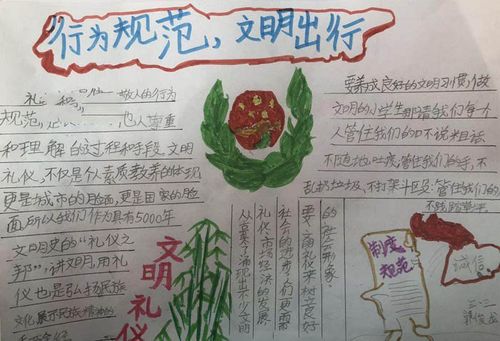 行为规范，文明出行
礼
敬人的行为
规范，
他人尊重
和理解的过程和手段，文明
礼仪，不仅是个素质教养的体现
更是城市的脸面，更是国家的脸
面，所以我们作为具有5000年
文明史的“礼仪之
邦”，讲文明，用礼
仪也是弘扬民族
文化展示民族精神的
要养成良好的文明习惯，做
文明的小学生那请我们每个
人管住我们的口不说粗话
不随地吐痰，管住我们的手，不
乱扔垃圾，不打架斗殴管住我们的
不践踏草坪
文明礼仪
的社会形象，
要工商礼仪来树立良好
社会的进步，人们更需
礼仪市场经济的发展
人
涌现出不少文明
制度
规范
诚信